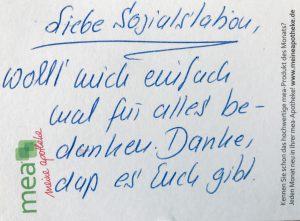 Liebe Sozialstation,
wollt' mich einfach
mal für alles be-
danken. Danke,
daß es Euch gibt.
mea
meine apotheke
Kennen Sie schon das hochwertige mea-Produkt des Monats?
Jeden Monat neu in Ihrer mea-Apotheke! www.meineapotheke.de